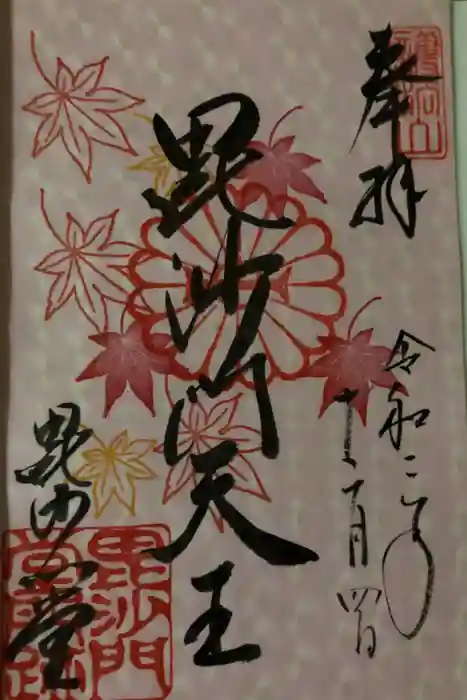 奉拝
令和二年
十一月四日
毘沙門天王
毘沙門堂
毘沙門
堂門跡